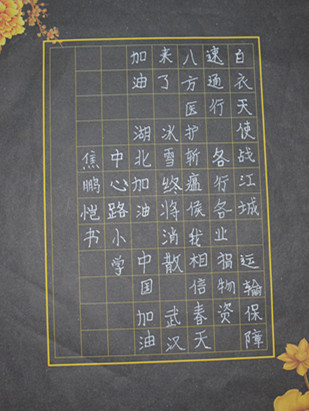 白衣天使战江城 运输保障
速通行 各行各业捐物资
八方医护斩瘟侯我相信春天
来了 冰雪终将消散 武汉
加油 湖北加油 中国 加油
中心路小学
焦鹏恺书